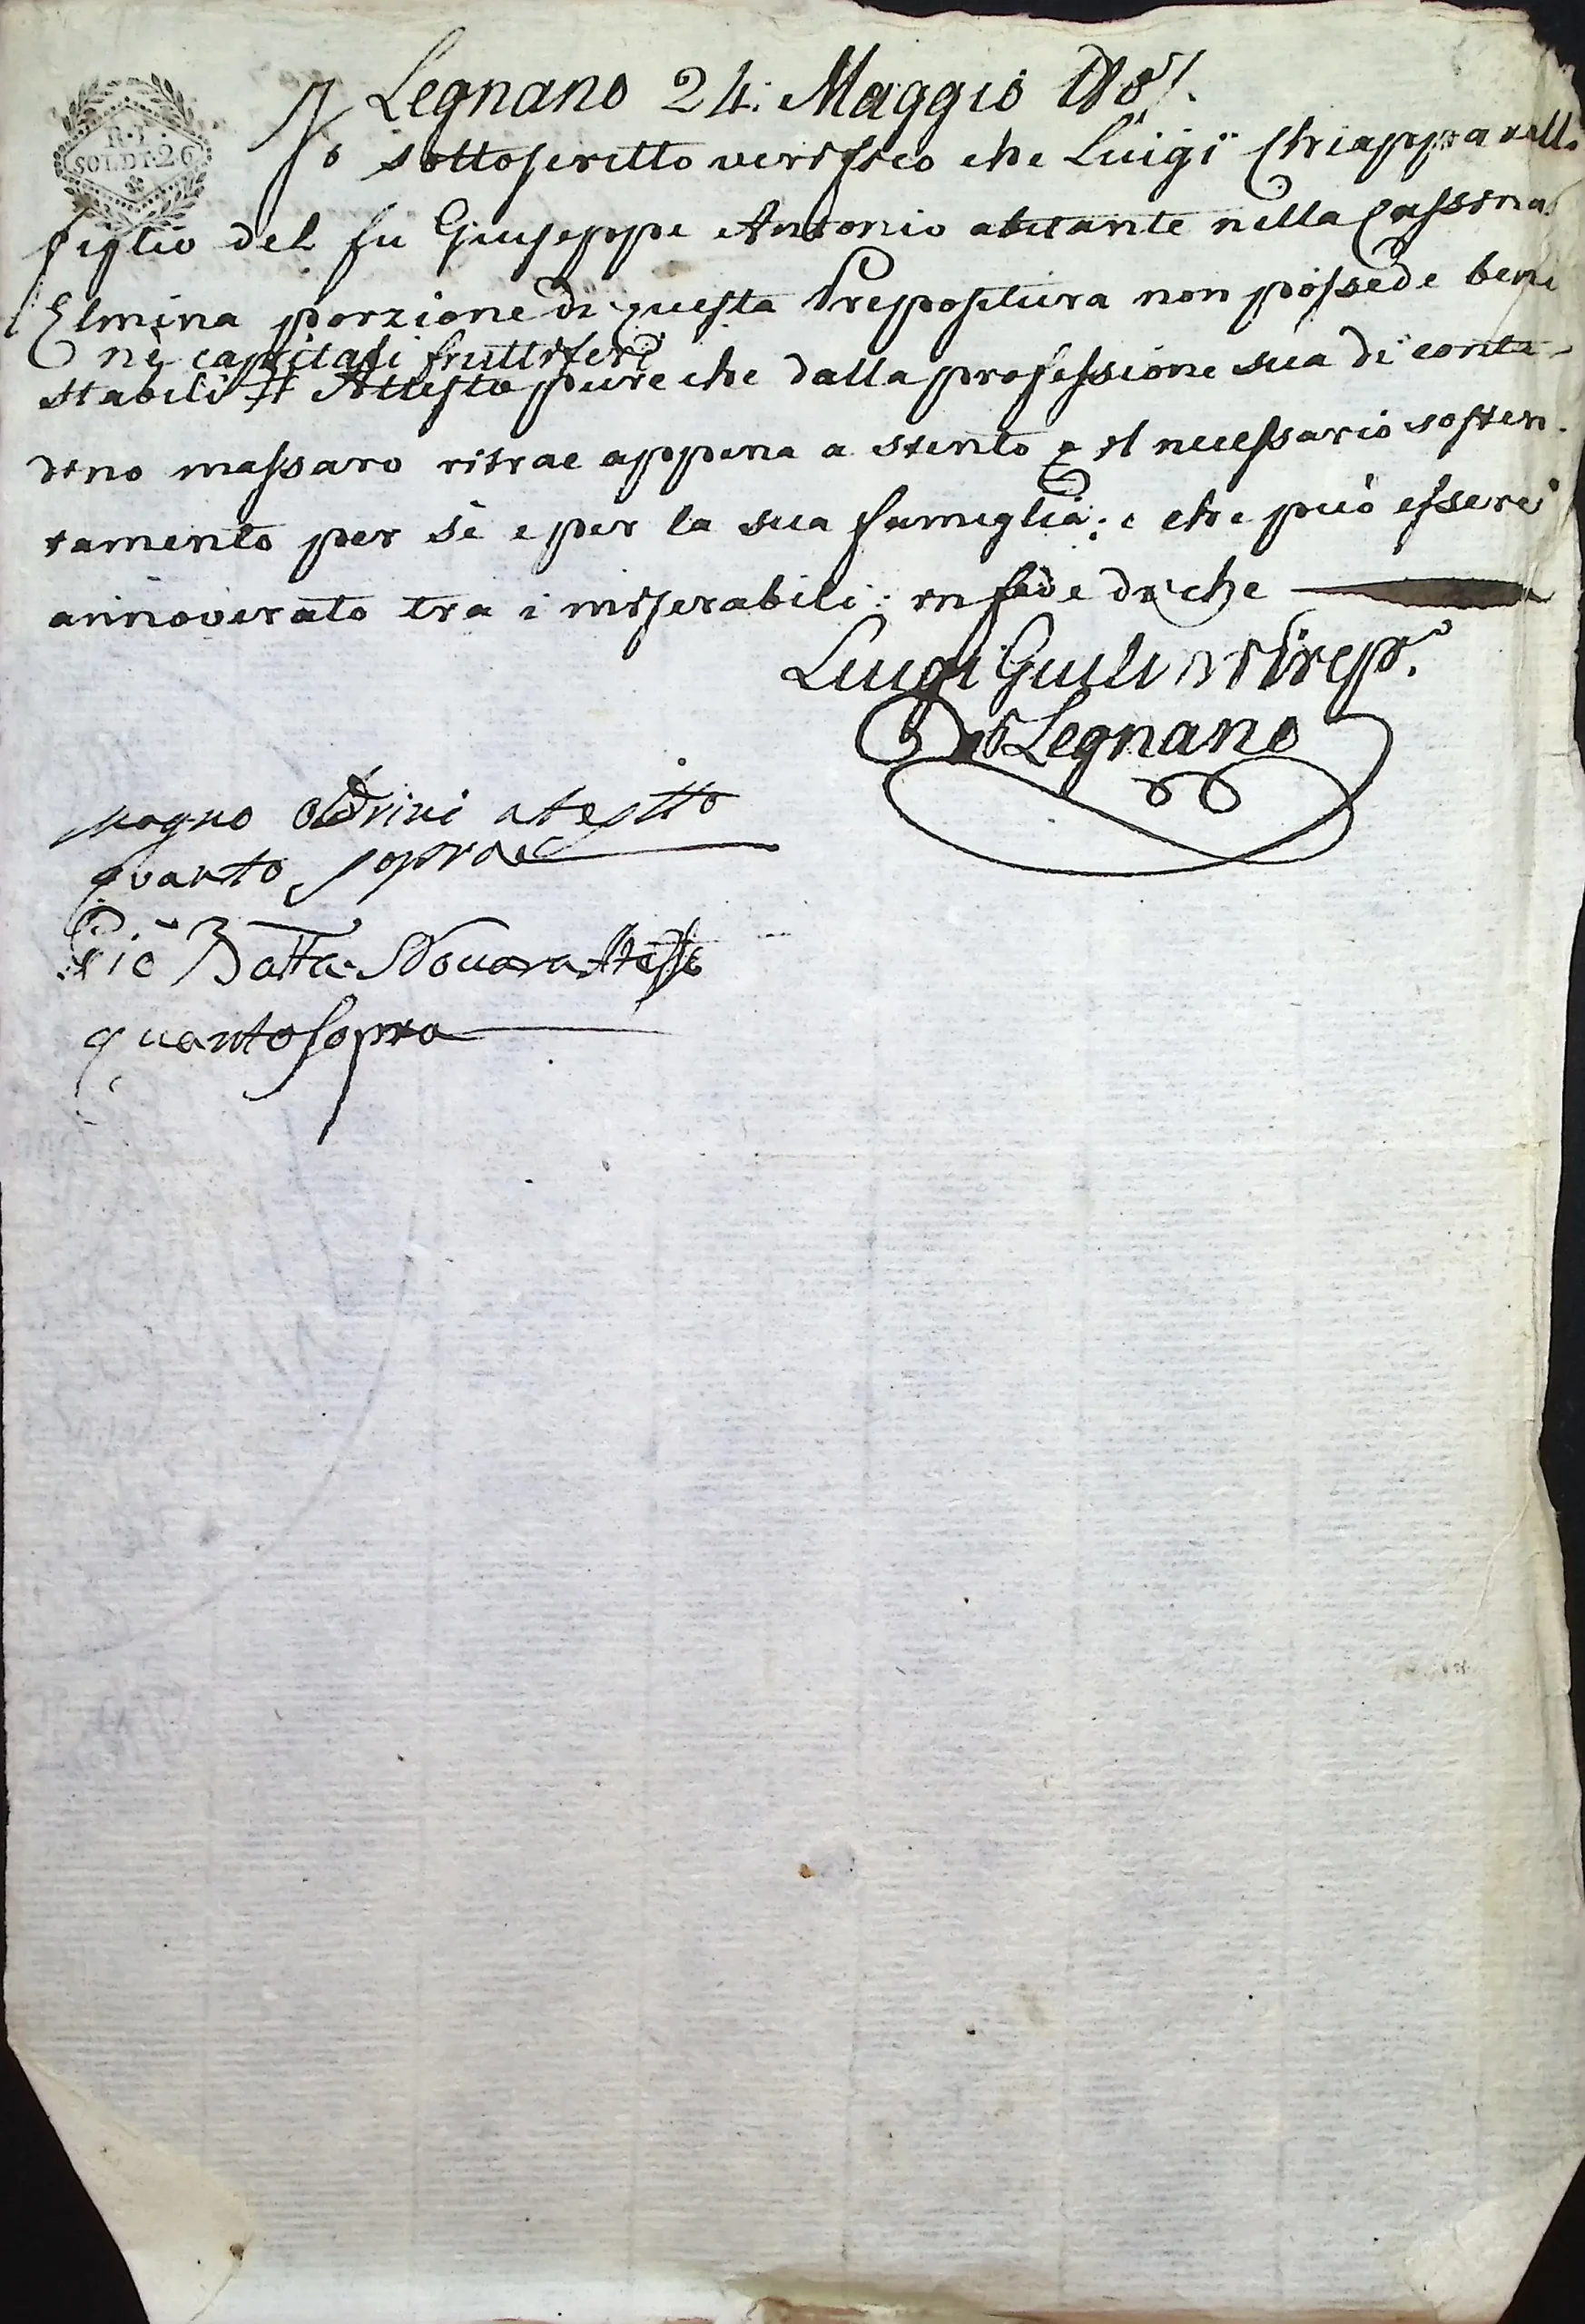 R. I.
SOLDI. 26
Legnano 24. Maggio
Io sottoscritto verifico che Luigi Chiapparelli
figlio del fu Giuseppe Antonio abitante nella Cassina
Elmina porzione di questa Prepositura non possede beni
nè capitali fruttiferi
stabili # Attesto pure che dalla professione sua di conta-
dino massaro ritrae appena a stento il necessario sosten-
tamento per sè e per la sua famiglia: e che può essere
annoverato tra i miserabili: in fede di che
Luigi Prep.
Di Legnano
Magno Oldrini atesto
quanto sopra
Gio Batta Novara Attesto
quanto sopra